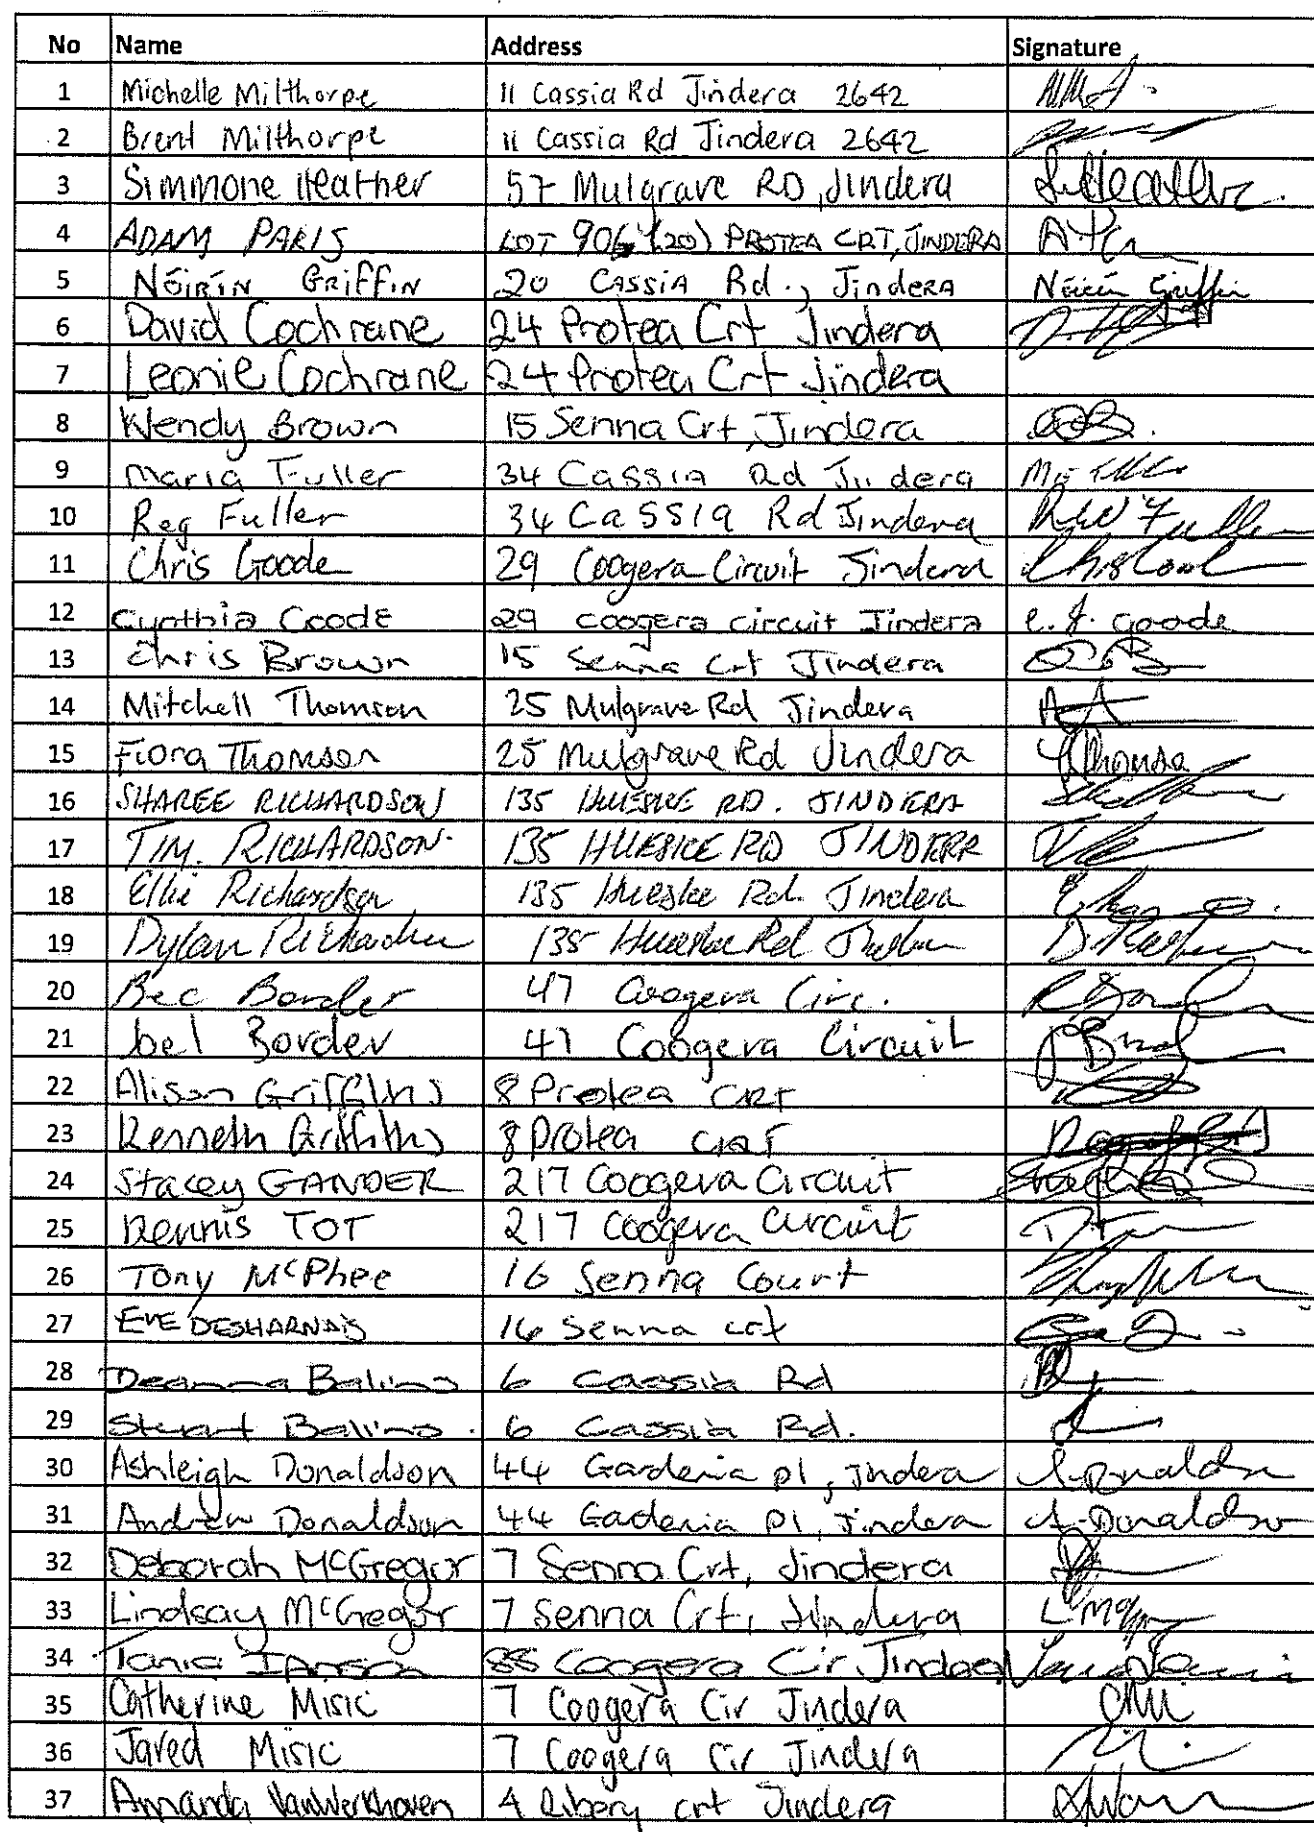 No Name Address Signature
1 Michelle Milthorpe 11 Cassia Rd Jindera 2642
2 Brent Milthorpe 11 Cassia Rd Jindera 2642
3 Simmone Heather 57 Mulgrave RD, Jindera
4 ADAM PARIS LOT 906 (20) PROTEA CRT, JINDERA
5 NÓIRÍN GRIFFIN 20 CASSIA Rd., JINDERA Nóirín Griffin
6 David Cochrane 24 Protea Crt Jindera
7 Leonie Cochrane 24 Protea Crt Jindera
8 Wendy Brown 15 Senna Crt, Jindera
9 Maria Fuller 34 Cassia Rd Jindera
10 Reg Fuller 34 Cassia Rd Jindera
11 Chris Goode 29 Coogera Circuit Jindera
12 Cynthia Goode 29 Coogera circuit Jindera c. J. Goode
13 Chris Brown 15 Senna Crt Jindera
14 Mitchell Thomson 25 Mulgrave Rd Jindera
15 Fiona Thomson 25 Mulgrave Rd Jindera
16 SHAREE RICHARDSON 135 HUESKE RD. JINDERA
17 TIM. RICHARDSON 135 HUESKE RD JINDERA
18 Ellie Richardson 135 Hueske Rd Jindera
19 Dylan Richardson 135 Hueske Rd Jindera
20 Bec Border 47 Coogera Circ.
21 Joel Border 47 Coogera Circuit
22 Alison Griffiths 8 Protea CRT
23 Kenneth Griffiths 8 Protea CRT
24 Stacey GANDER 217 Coogera Circuit
25 Dennis TOT 217 Coogera Circuit
26 Tony McPhee 16 Senna Court
27 EVE DESHARNAIS 16 Senna crt
28 Deanna Balino 6 Cassia Rd
29 Stuart Balino. 6 Cassia Rd.
30 Ashleigh Donaldson 44 Gardenia pl, Jindera A. Donaldson
31 Andrew Donaldson 44 Gadenia pl, Jindera A. Donaldson
32 Deborah McGregor 7 Senna Crt, Jindera
33 Lindsay McGregor 7 Senna Crt, Jindera
34 Tania 88 Coogera Cir Jindera
35 Catherine Misic 7 Coogera Cir Jindera
36 Jared Misic 7 Coogera Cir Jindera
37 Amanda VanWerkhoven 4 Ribery crt Jindera